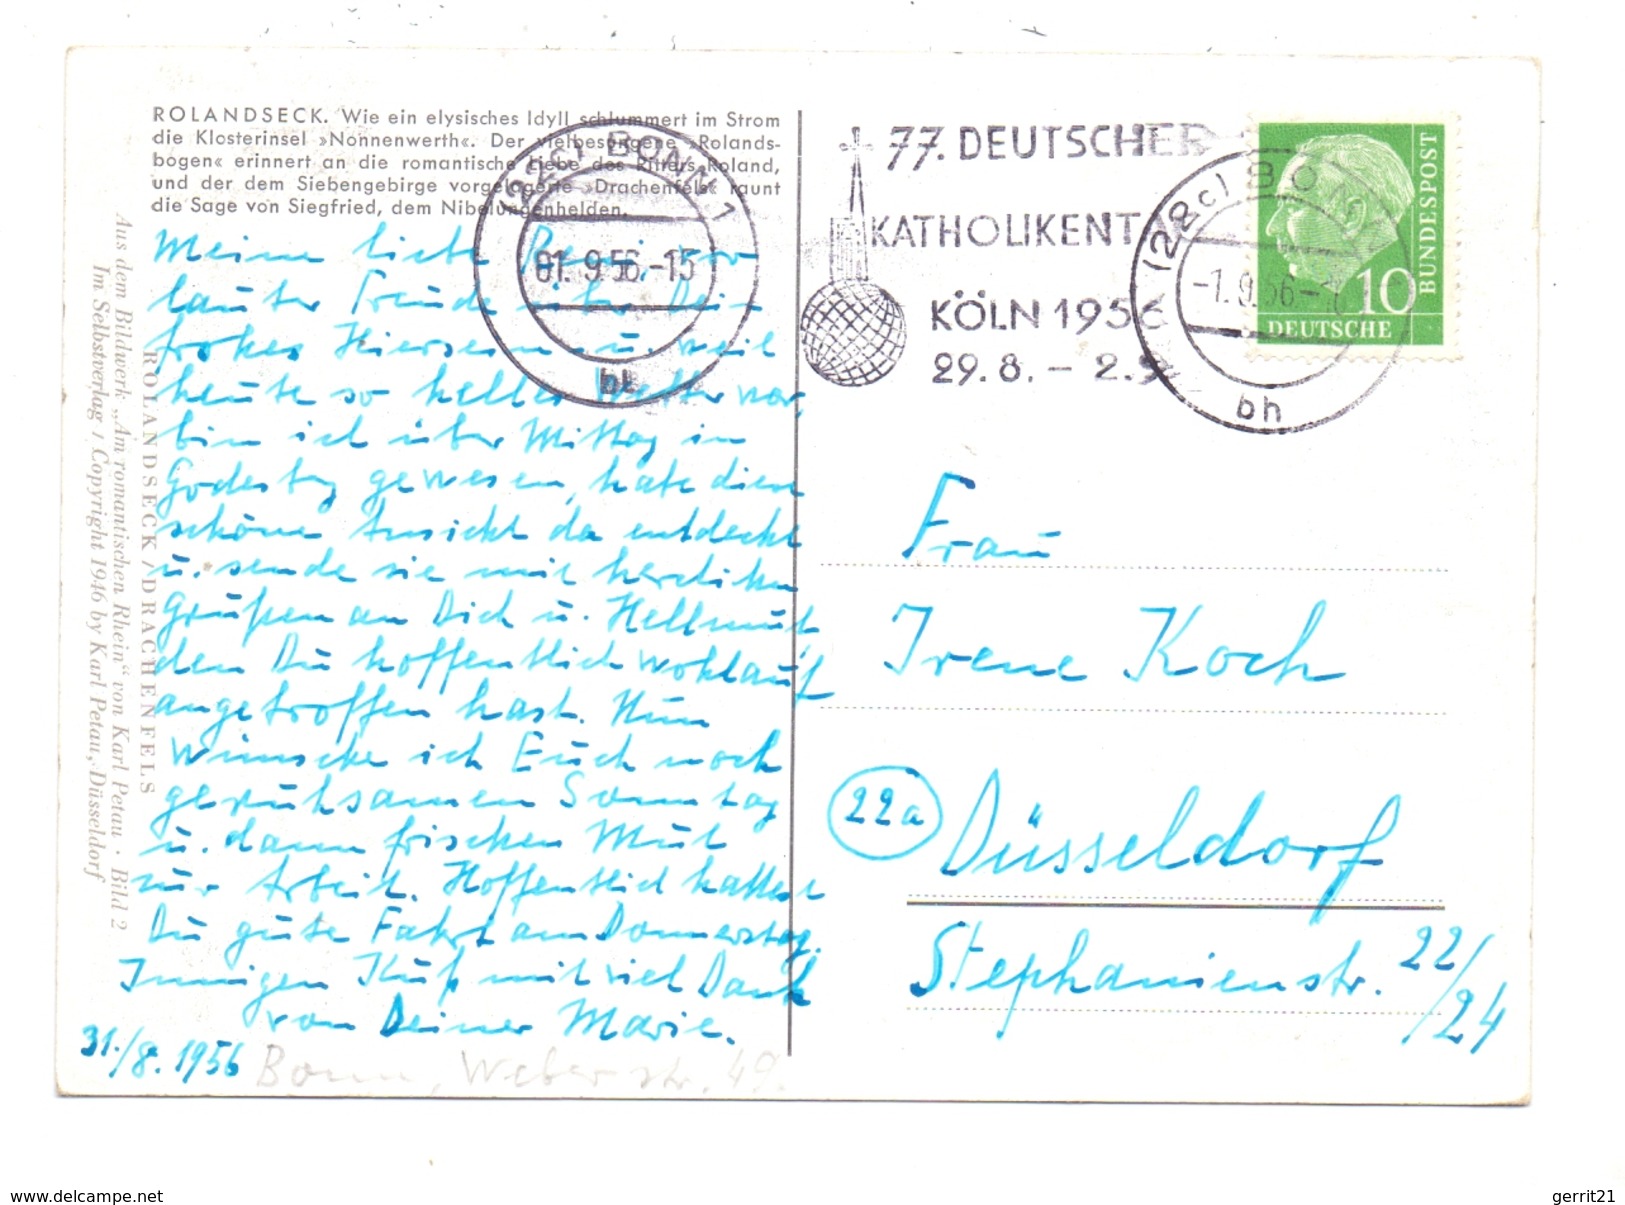 ROLANDSECK. Wie ein elysisches Idyll schlummert im Strom
die Klosterinsel »Nonnenwerth«. Der vielbesungene »Rolands-
bogen« erinnert an die romantische Liebe des Ritters Roland,
und der dem Siebengebirge vorgelagerte »Drachenfels« raunt
die Sage von Siegfried, dem Nibelungenhelden.
Meine liebe Reni, vor
lauter Freude über Dein
frohes Hiersein u. weil
heute so helles Wetter war,
bin ich über Mittag in
Godesbg gewesen, habe diese
schöne Ansicht da entdeckt
u. sende sie mit herzlichen
Grüßen an Dich u. Hellmut,
den Du hoffentlich wohlauf
angetroffen hast. Nun
wünsche ich Euch noch
geruhsamen Sonntag
u. dann frischen Mut
zur Arbeit. Hoffentlich hattest
Du gute Fahrt am Donnerstag.
Innigen Kuß mit viel Dank
von Deiner Marie.
31./8. 1956
Bonn, Weberstr. 49.
ROLANDSECK / DRACHENFELS
Aus dem Bildwerk „Am romantischen Rhein“ von Karl Petau · Bild 2
Im Selbstverlag / Copyright 1946 by Karl Petau, Düsseldorf
(22c) BONN 1
01.9.56.-15
bh
77. DEUTSCHER
KATHOLIKENTAG
KÖLN 1956
29.8. - 2.9.
(22c) BONN
-1.9.56-
bh
10
DEUTSCHE
BUNDESPOST
Frau
Irene Koch
22a Düsseldorf
Stephanienstr. 22/24
www.delcampe.net
gerrit21